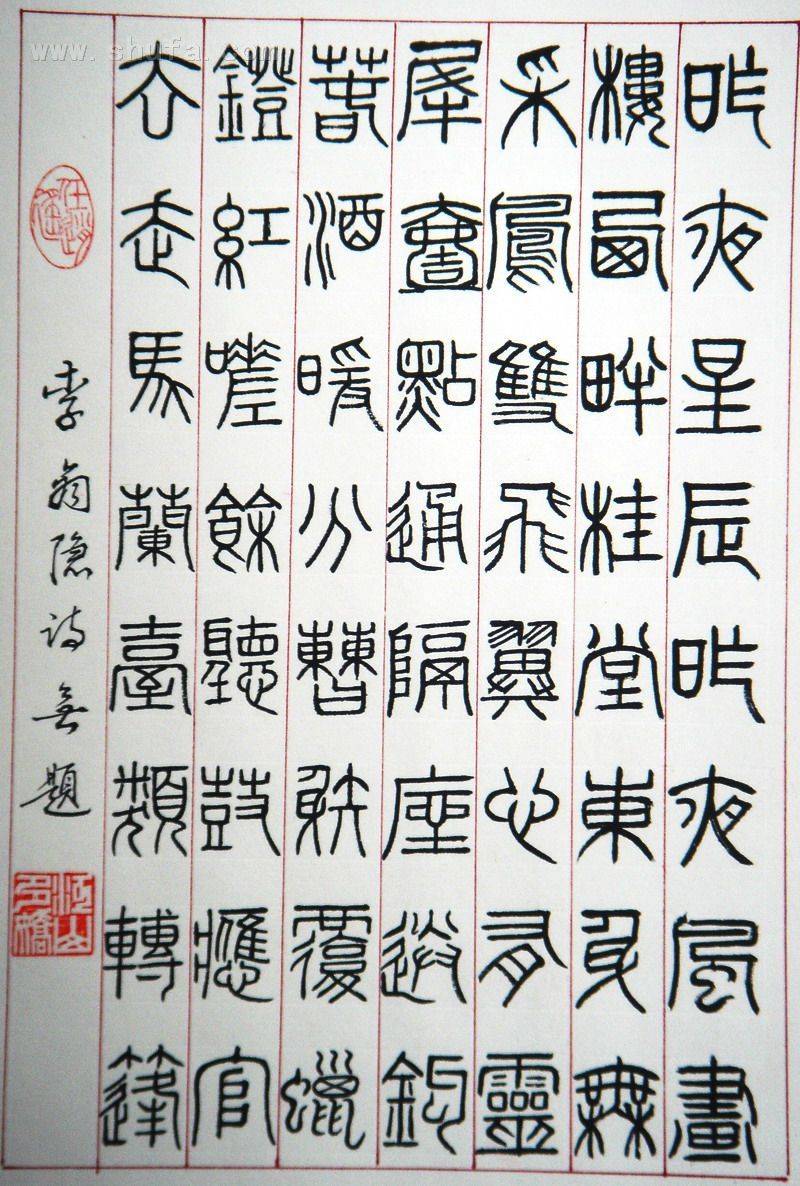 昨夜星辰昨夜風畫
樓西畔桂堂東身無
采鳳雙飛翼心有靈
犀壹點通隔座送鉤
春酒暖分曹射覆蠟
鐙紅嗟餘聽鼓應官
去走馬蘭臺類轉蓬
李商隐诗無題
江山多嬌
www.shufa.com